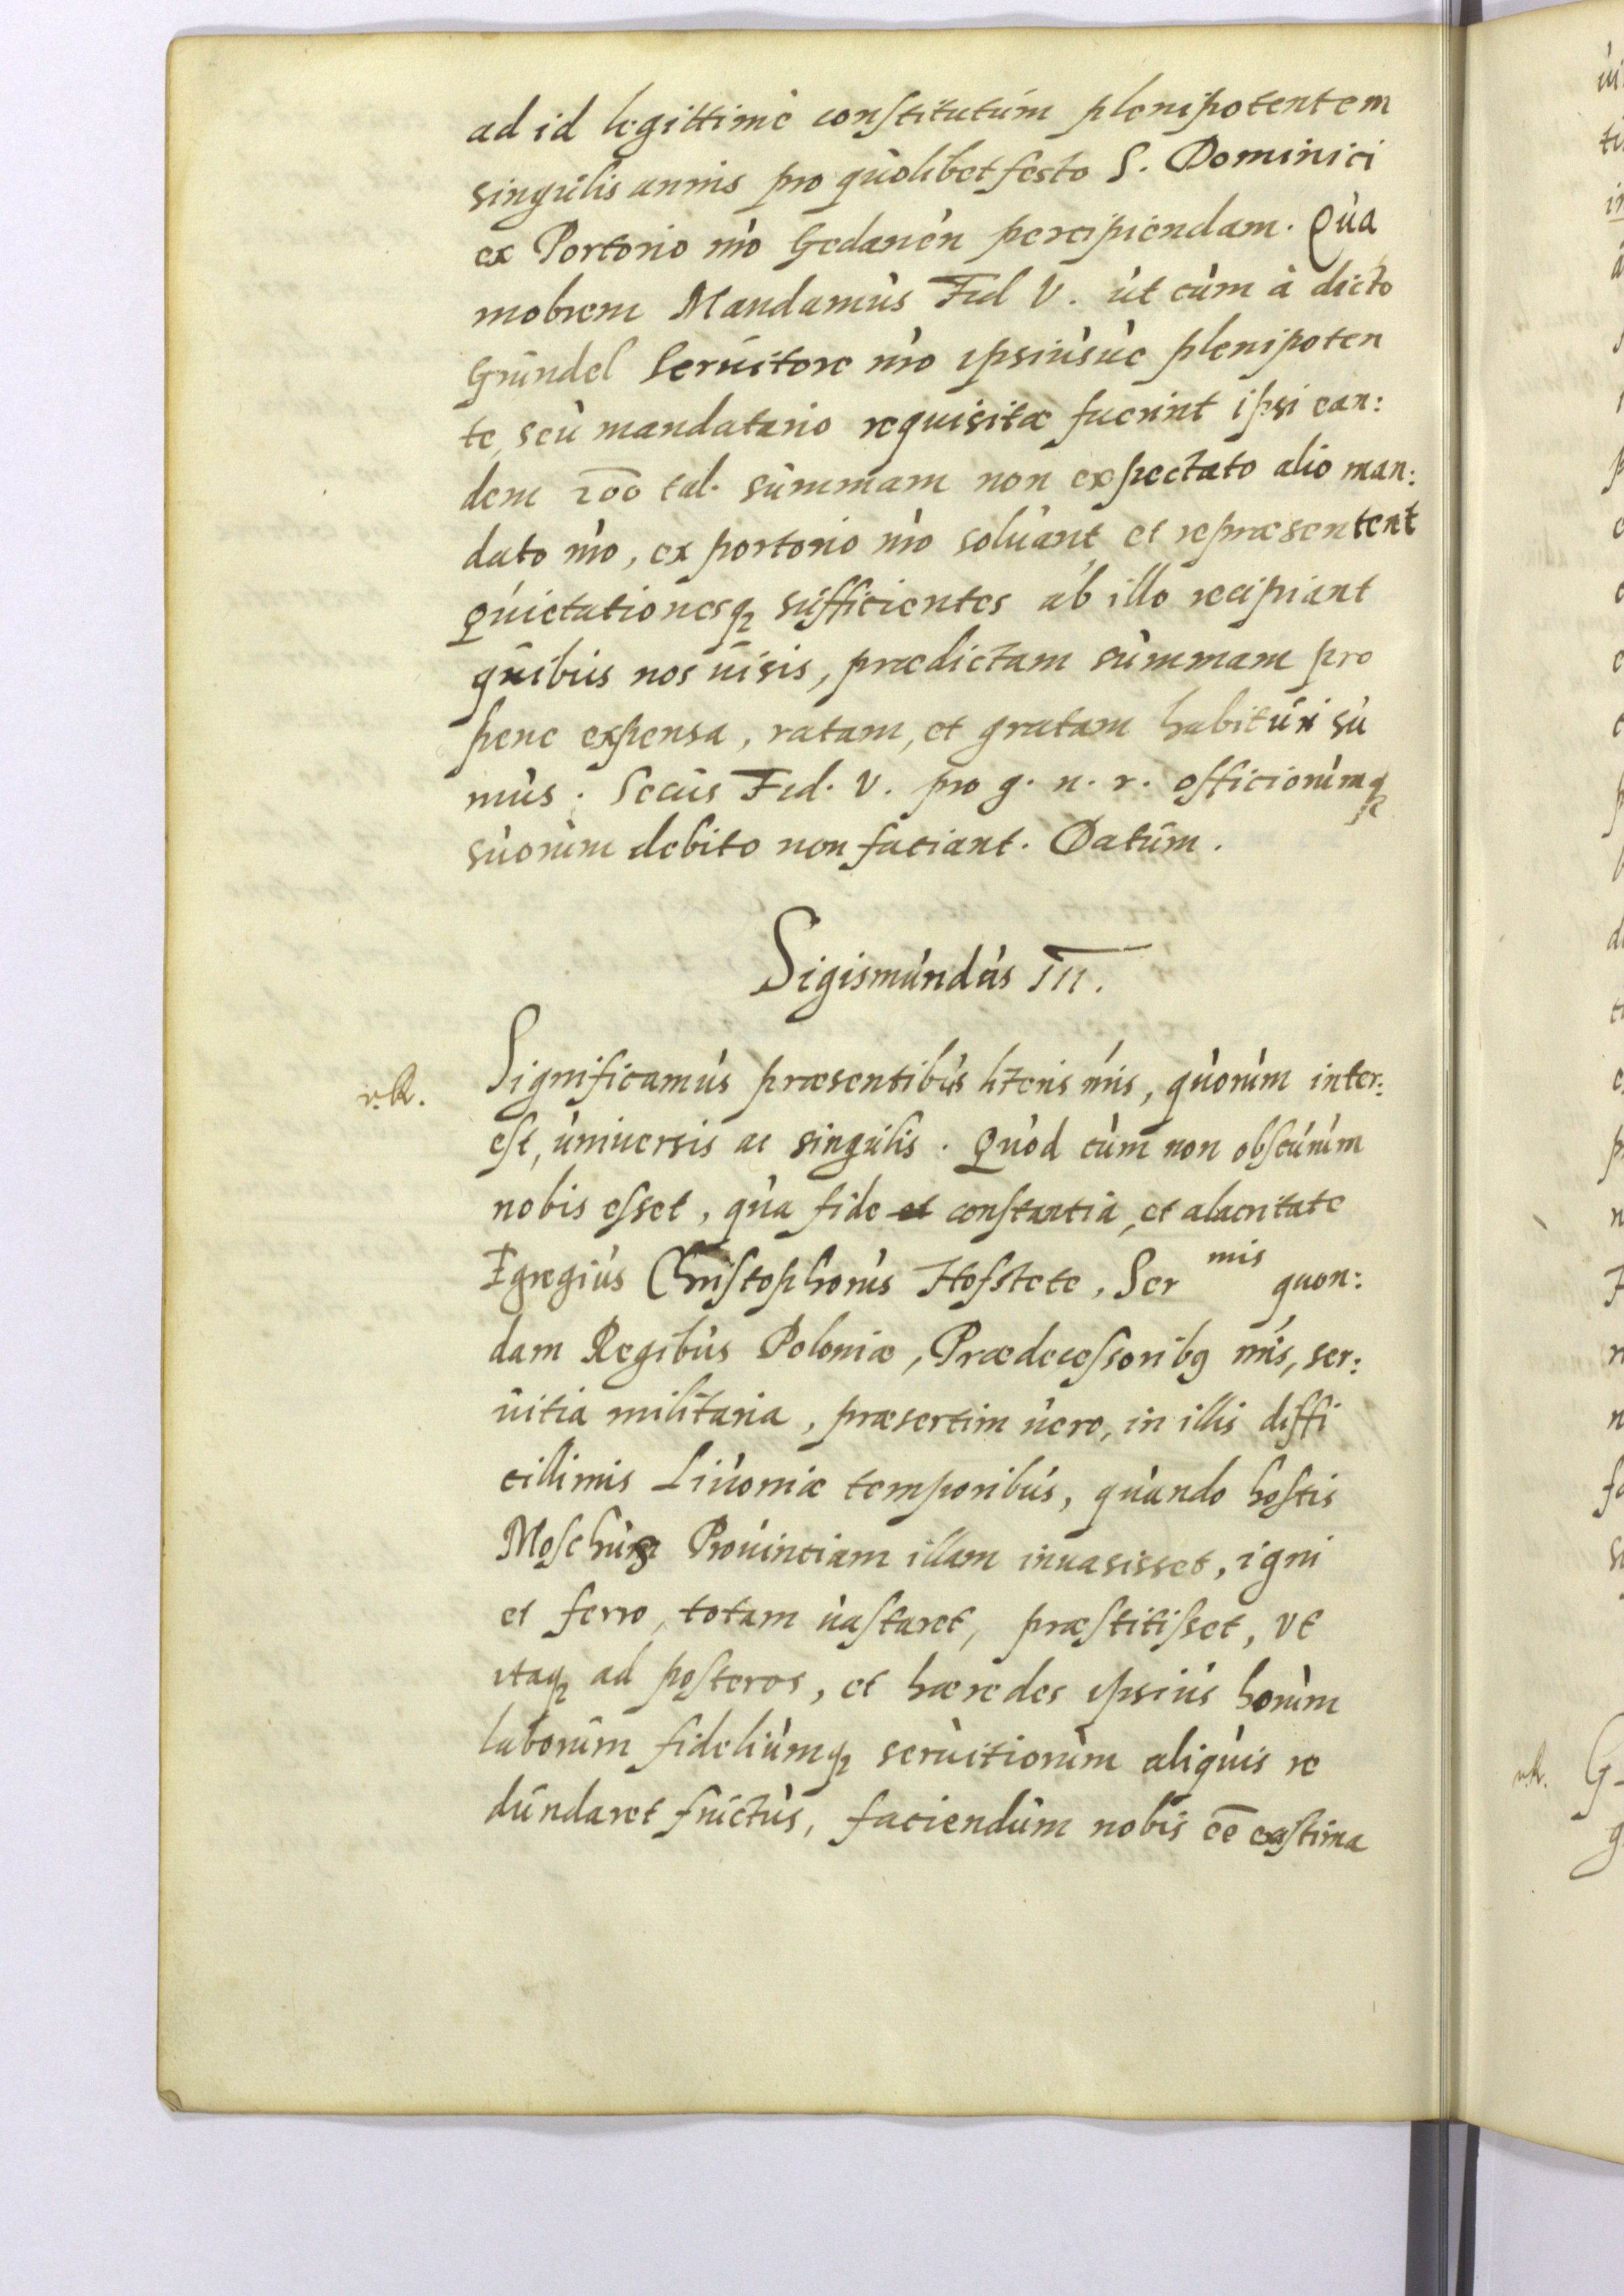 ad id legittimè constitutùm plenipotentem
singùlis annis pro qùolibet festo S. Dominici
ex Portorio nro Gedanen percipiendam. Qùa
mobrem Mandamùs Fid V. ùt cùm à dicto
Grùndel Seruitore nro ipsiùsùe plenipoten
te, seù mandatario requisitæ fuerint ipsi ean:
dem 200 tal. sùmmam non expectato alio man:
dato nro, ex portorio nro solùant et repræsentent
Qùietationesq sùfficientes ab illo recipiant
qùibùs nos ùisis, prædictam sùmmam pro
pene expensa, ratam, et gratam habitùri sù
mùs. Secùs Fid. V. pro g. n. r. officiorùmq
sùorùm debito non faciant. Datùm.
Sigismùndùs III.
r.R. Significamùs præsentibùs lrẽris nris, qùorùm inter:
est, ùniuersis ac singùlis. Qùod cùm non obscùrùm
nobis esset, qùa fide et constantia, et alacritate
Egregiùs Christophorùs Hofstete, Ser mis quon:
dam Regibùs Poloniæ, Prædecessoribq nris, ser:
ùitia militaria, præsertim ùero, in illis diffi
cillimis Liùoniæ temporibùs, qùando hostis
Moschùs Proùinciam illam inuasisset, igni
et ferro, totam ùastaret, præstitisset, vt
itaq ad posteros, et hæredes ipsiùs horùm
laborùm fideliùmq seruitiorùm aliqùis re
dùndaret frùctùs, faciendùm nobis eē exstima
r.R.